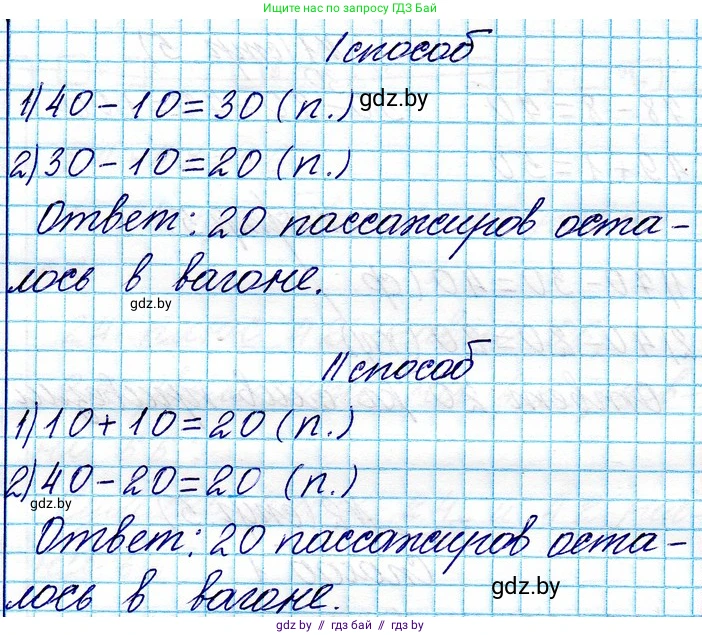 Ищите нас по запросу ГДЗ Бай
I способ
1) 40 - 10 = 30 (п.)
gdz.by
2) 30 - 10 = 20 (п.)
Ответ: 20 пассажиров оста-
лось в вагоне.
gdz.by
II способ
1) 10 + 10 = 20 (п.)
2) 40 - 20 = 20 (п.)
gdz.by
Ответ: 20 пассажиров оста-
лось в вагоне.
gdz.by
gdz.by // гдз бай // гдз.by